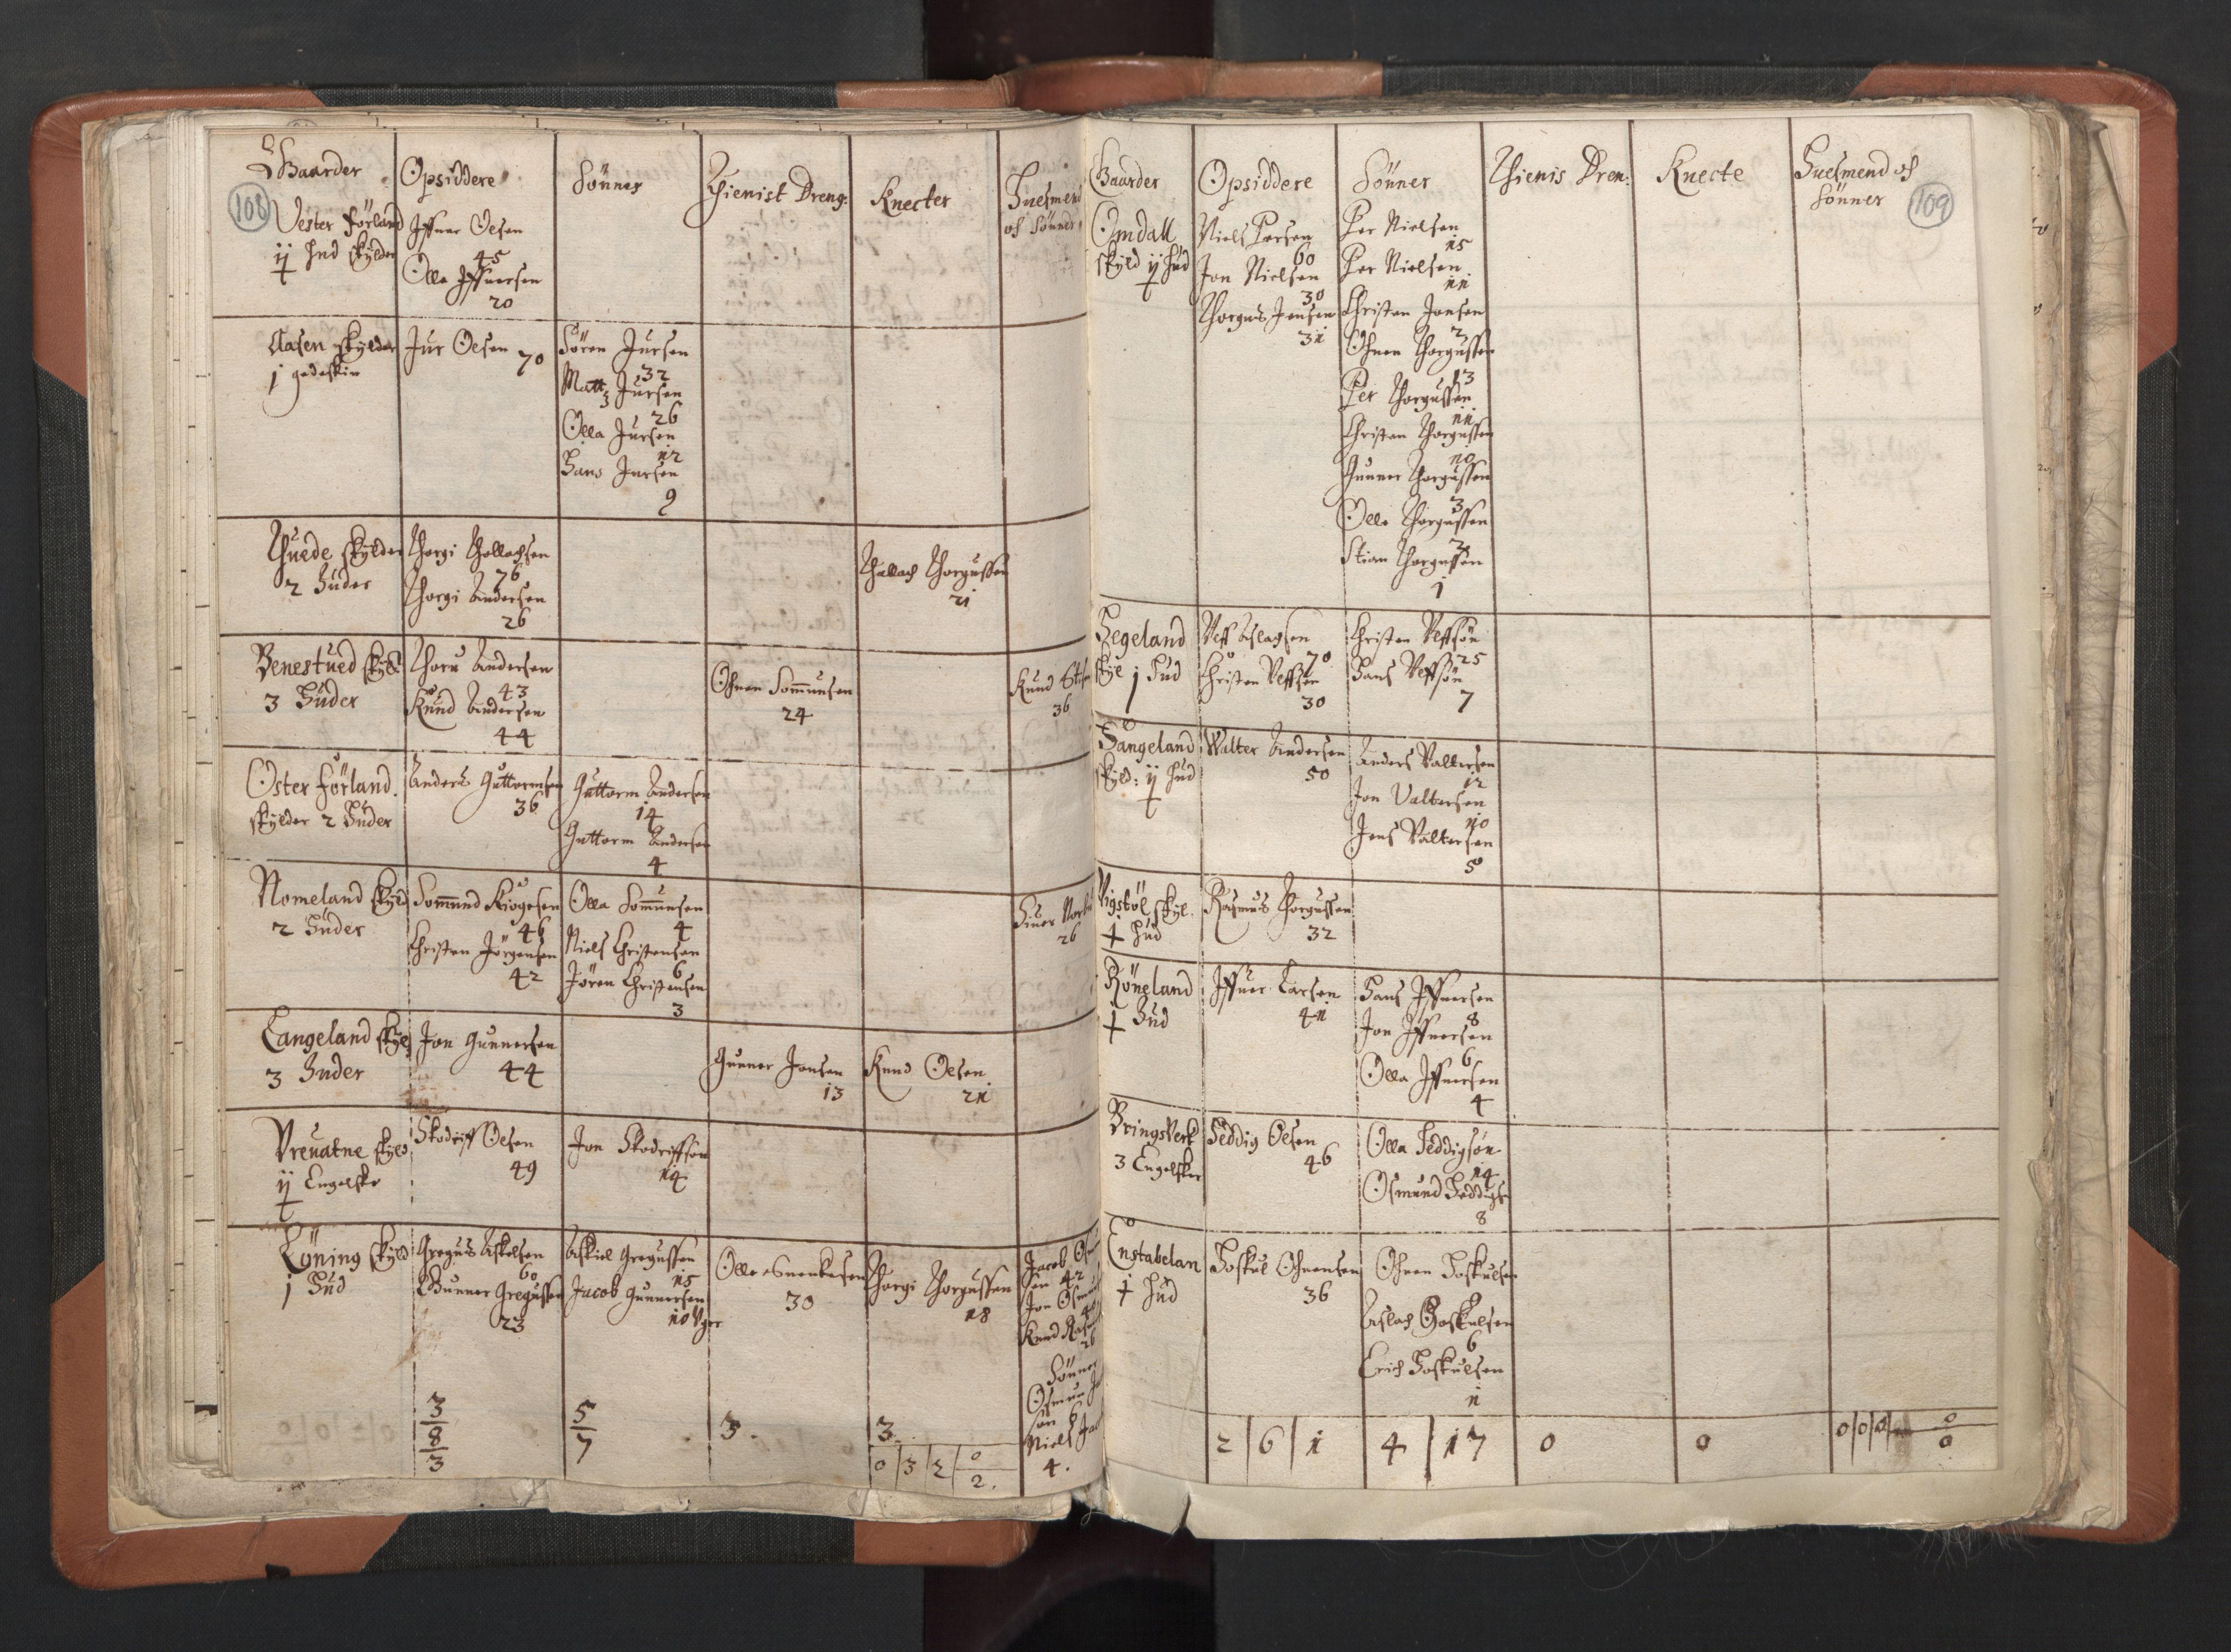 108
Gaarder
Opsiddere
Sönner
Thienist Dreng:
Knecter
Husmend
och Sönner
Vester förland
ij Hud skylder
Iffuer Oelsen
45
Olle Iffuersen
20
Aasen skylder
j gedeskin
Jur Oelsen 70
Sören Jursen
32
Matz Jursen
26
Olla Jursen
12
Hans Jursen
9
Thuede skylder
2 Huder
Thorgi Thollachsen
76
Thorgi Andersen
26
Thallach Thorgussen
21
Benestued skyld
3 Huder
Thoru Andersen
43
Knud Andersen
44
Ohnen Sommunsen
24
Knud
36
Oster förland
skylder 2 Huder
Anders Guttormsen
36
Guttorm Andersen
14
Guttorm Andersen
4
Nomeland skyld
2 Huder
Sommund Kiogesen
46
Christen Jörgensen
42
Olla Sommunsen
4
Niels Christensen
6
Jören Christensen
3
26
Langeland skyld
3 Huder
Jon Gunnersen
44
Gunner Jonsen
13
Knud Oelsen
21
Vreuatne skyld
ij Engelske
Skodriff Oelsen
49
Jon Skodriffsön
14
Löning skyld
j Hud
Gregus Askelsen
60
Gunner Gregussen
23
Askiel Gregussen
15
Jacob Gunnersen
10 Vger
Olle
30
Thorgi Thorgussen
18
Jacob
42
Jon
40
Knud
26
Sönner
6
Niels
4.
3
8
3
5
7
3.
3.
0 3 2 0
2.
109
Gaarder
Opsiddere
Sönner
Thienis Dren:
Knecte
Huesmend och
Sönner
Omdall
skyld ij Hud
Niels Persen
60
Jon Nielsen
30
Thorgus Jensen
31
Per Nielsen
15
Per Nielsen
11
Christen Jonsen
2
Ohnen Thorgussen
13
Per Thorgussen
11
Christen Thorgussen
10
Gunner Thorgussen
3
Olle Thorgussen
2
Stian Thorgussen
1
Hegeland
skyl j Hud
Veff Aslagsen
70
Christen Veffsen
30
Christen Veffsön
25
Hans Veffsön
7
Hangeland
skyld: ij Hud
Walter Andersen
50
Anders Valtersen
12
Jon Valtersen
10
Jens Valtersen
5
Vigsböl skyl.
Hud
Rasmus Thorgussen
32
Röneland
Hud
Iffuer Larsen
41
Hans Iffuersen
8
Jon Iffuersen
6
Olla Iffuersen
4
BringsVerk
3 Engelsker
Feddig Oelsen
46
Olla Feddigsön
14
Osmund Feddigsen
8
Enstabelan
Hud
Hoskul Ohnensen
36
Ohnen Hoskulsen
Aslach Hoskulsen
6
Erich Hoskulsen
11
2 6 1
4 17
0
0
0 0 0
0
0